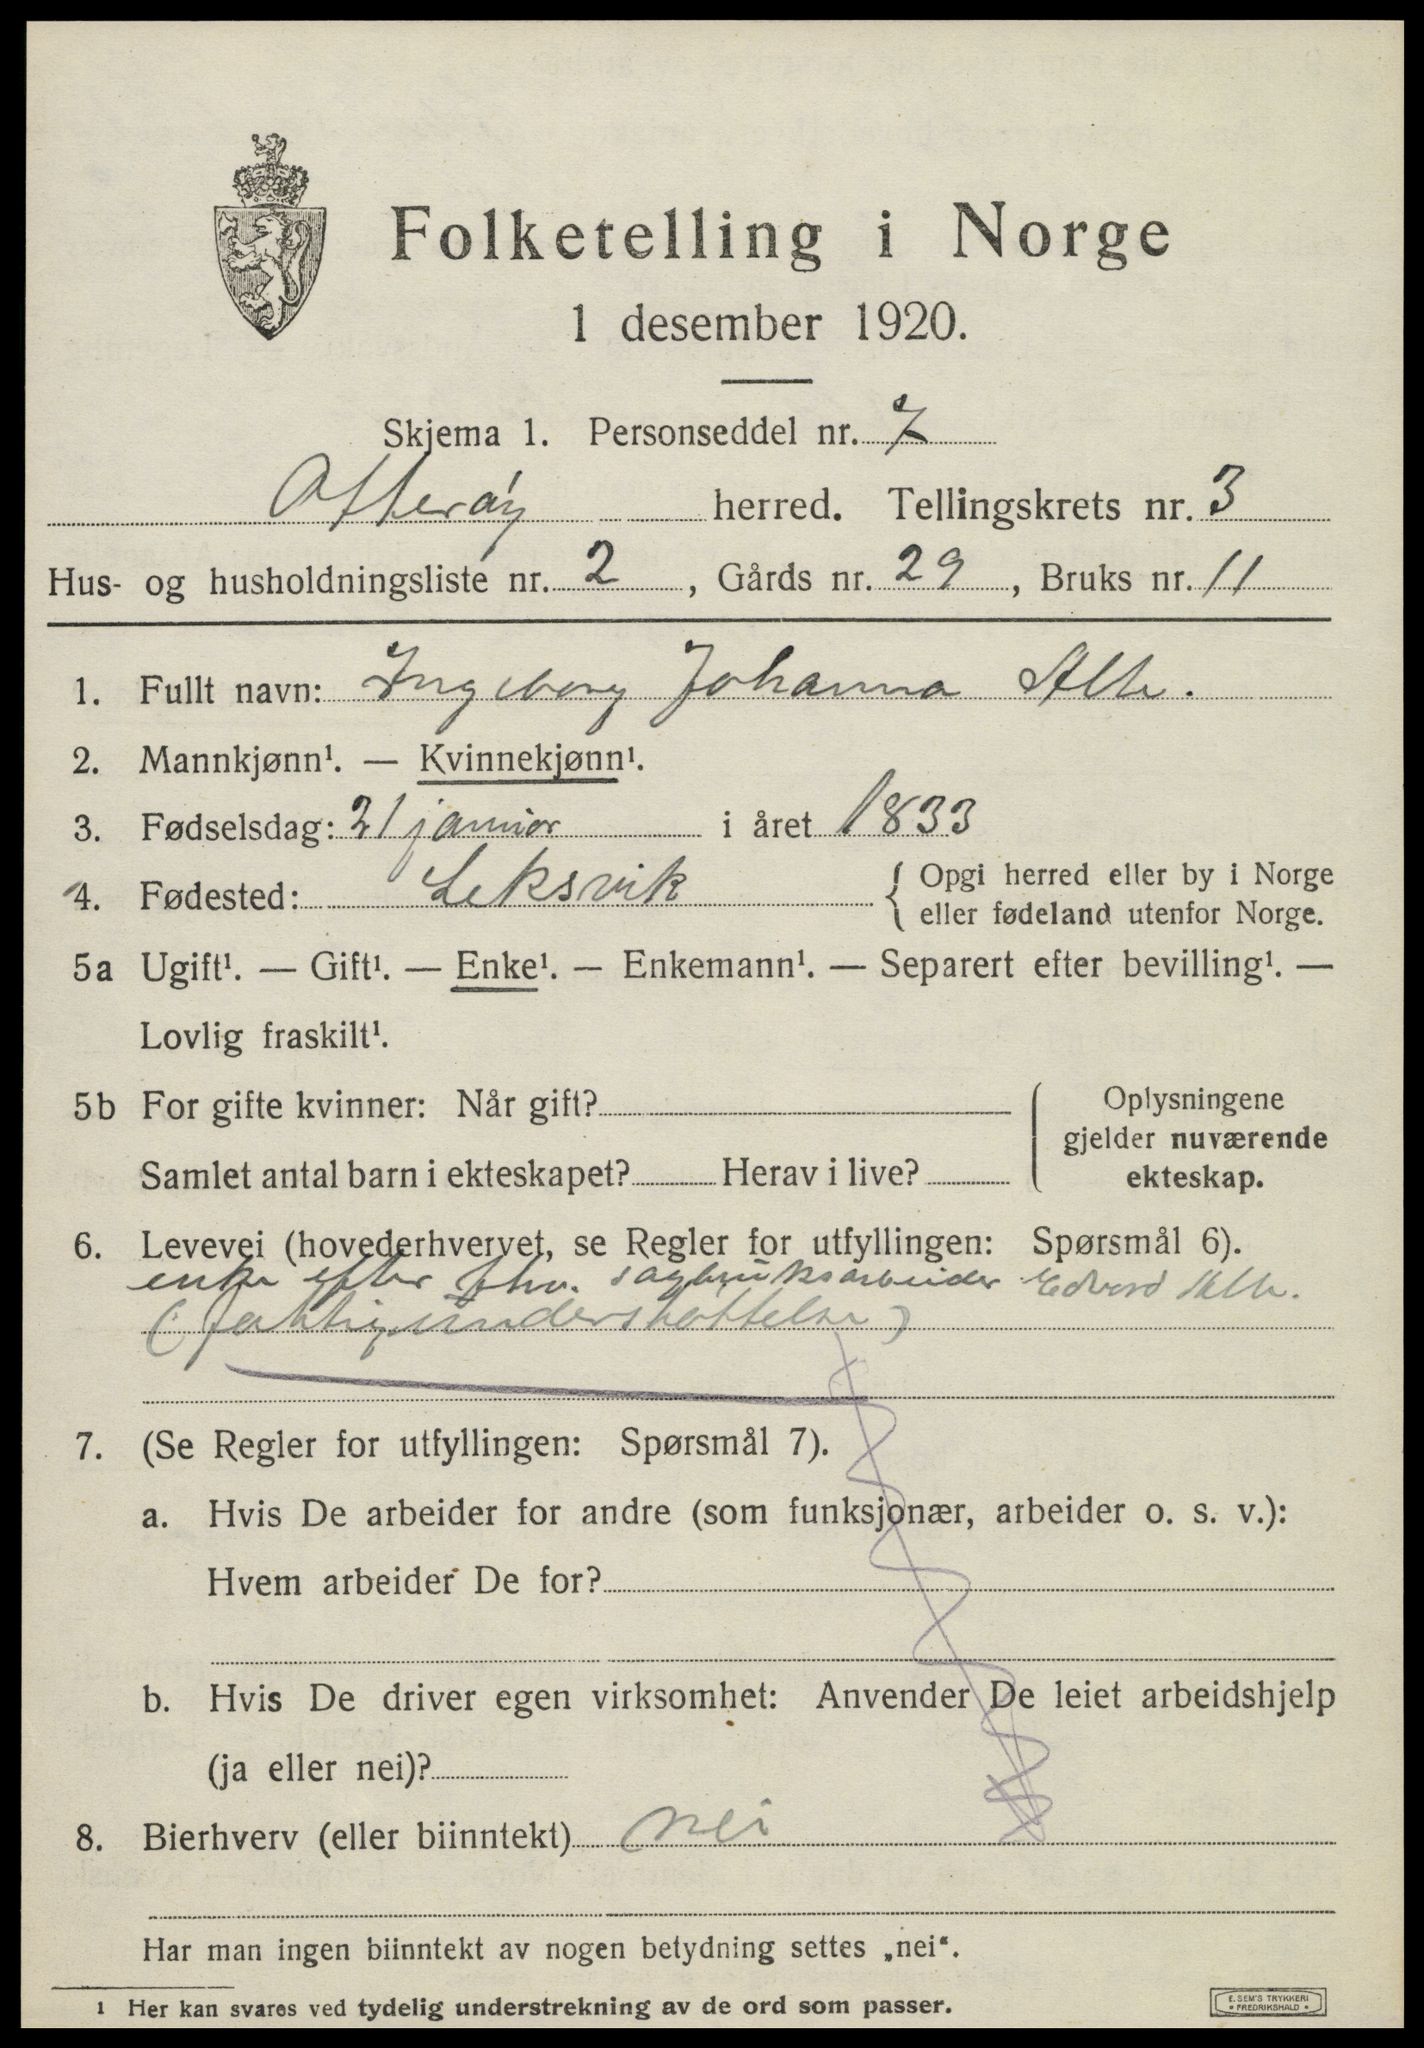 Folketelling i Norge
1 desember 1920.
Skjema 1. Personseddel nr. 7
Otterøy herred. Tellingskrets nr. 3
Hus- og husholdningsliste nr. 2, Gårds nr. 29, Bruks nr. 11
1. Fullt navn: Ingeborg Johanna Alte.
2. Mannkjønn¹. — Kvinnekjønn¹.
3. Fødselsdag: 21 januar i året 1833
4. Fødested: Leksvik { Opgi herred eller by i Norge
eller fødeland utenfor Norge.
5a Ugift¹. — Gift¹. — Enke¹. — Enkemann¹. — Separert efter bevilling¹. —
Lovlig fraskilt¹.
5b For gifte kvinner: Når gift?
Samlet antal barn i ekteskapet? Herav i live?
Oplysningene
gjelder nuværende
ekteskap.
6. Levevei (hovederhvervet, se Regler for utfyllingen: Spørsmål 6).
enke efter fhv. sagbruksarbeider Edvard Alte.
(fattigunderstøttelse)
7. (Se Regler for utfyllingen: Spørsmål 7).
a. Hvis De arbeider for andre (som funksjonær, arbeider o. s. v.):
Hvem arbeider De for?
b. Hvis De driver egen virksomhet: Anvender De leiet arbeidshjelp
(ja eller nei)?
8. Bierhverv (eller biinntekt) nei
Har man ingen biinntekt av nogen betydning settes „nei“.
1 Her kan svares ved tydelig understrekning av de ord som passer.
E. SEM'S TRYKKERI
• FREDRIKSHALD •